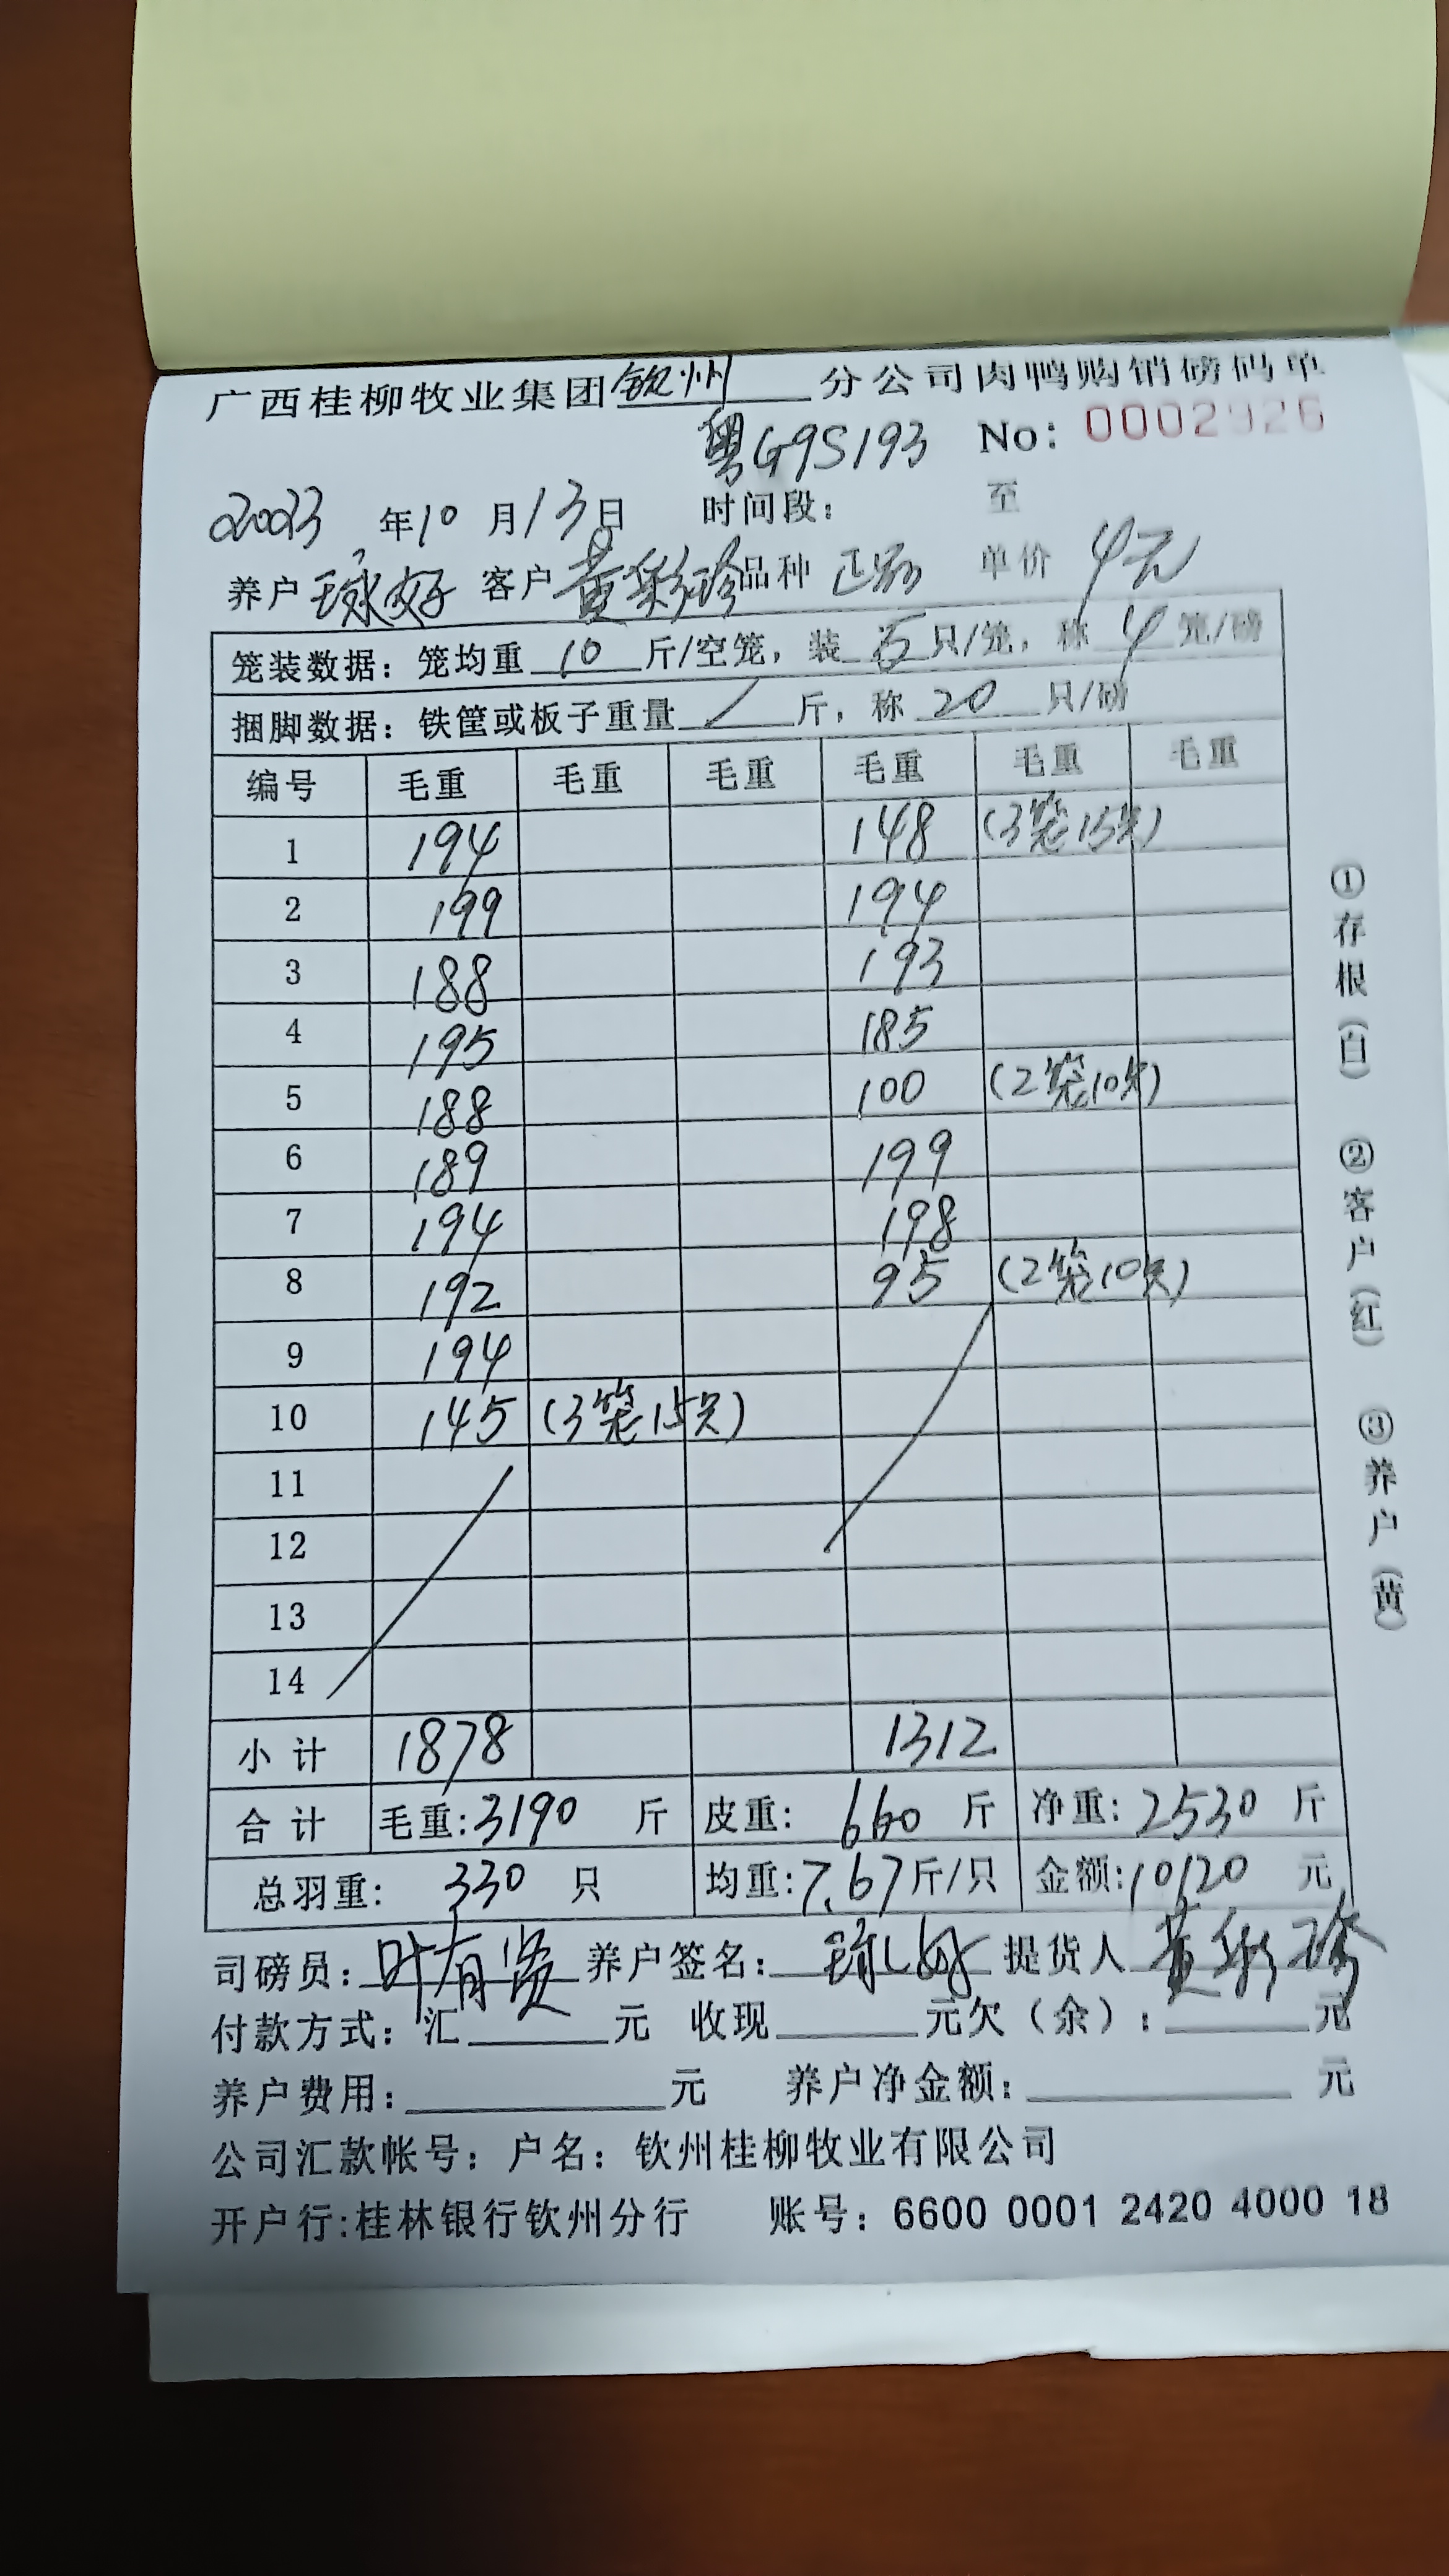 广西桂柳牧业集团钦州分公司肉鸭购销磅码单
粤G9S193 No: 0002926
2023年10月13日 时间段： 至
养户 球好 客户 黄彩珍 品种 正番 单价 4元
笼装数据：笼均重 10 斤/空笼，装 5 只/笼，称 4 笼/磅
捆脚数据：铁筐或板子重量 / 斤，称 20 只/磅
编号 毛重 毛重 毛重 毛重 毛重 毛重
1 194 148 (3笼15只)
2 199 194
3 188 193
4 195 185
5 188 100 (2笼10只)
6 189 199
7 194 198
8 192 95 (2笼10只)
9 194
10 145 (3笼15只)
11
12
13
14
小计 1878 1312
合计 毛重:3190 斤 皮重: 660 斤 净重: 2530 斤
总羽重: 330 只 均重:7.67斤/只 金额:10120 元
司磅员: 叶有贤 养户签名: 球好 提货人 黄彩珍
付款方式：汇 元 收现 元欠（余）： 元
养户费用： 元 养户净金额： 元
公司汇款帐号：户名：钦州桂柳牧业有限公司
开户行:桂林银行钦州分行 账号：6600 0001 2420 4000 18
①存根（白） ②客户（红） ③养户（黄）